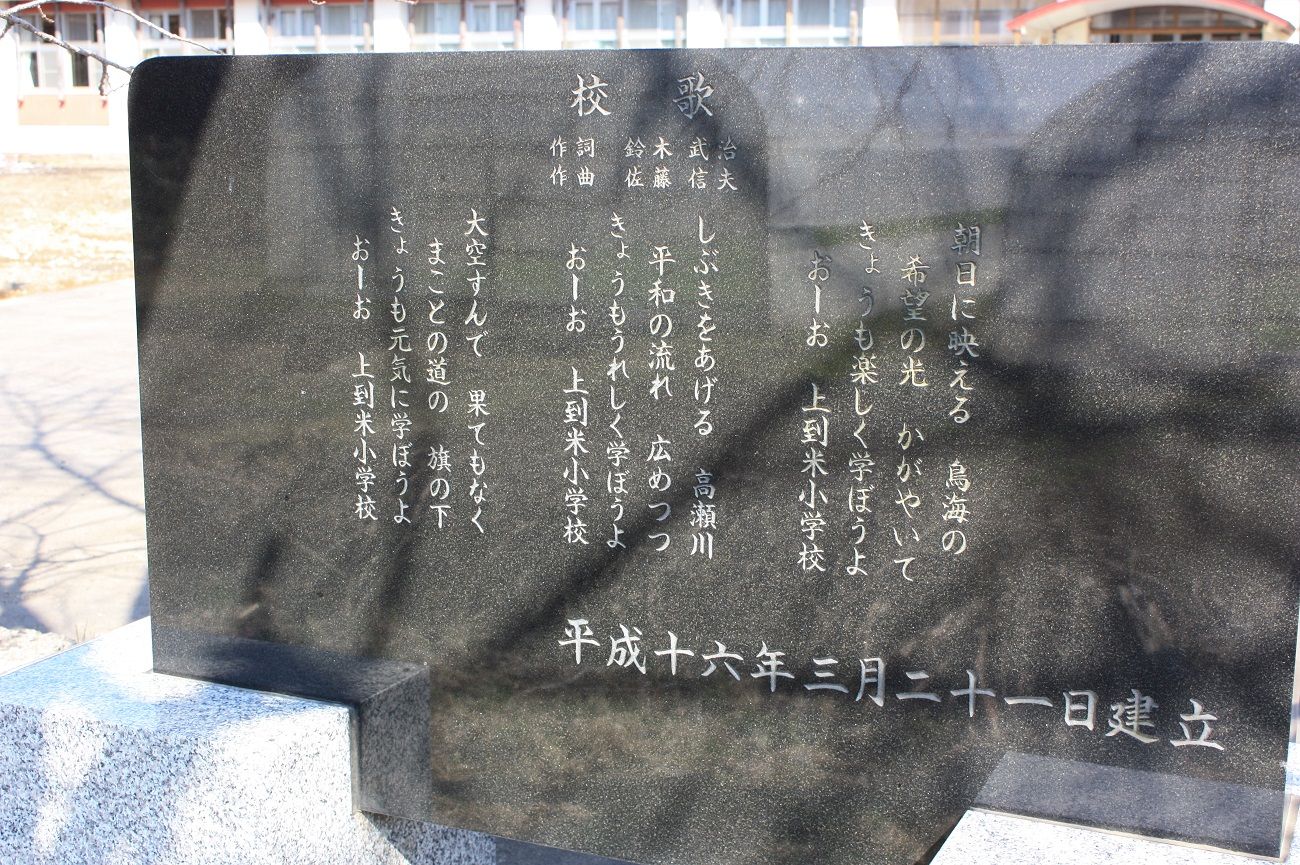 校歌
作詞 鈴木武治
作曲 佐藤信夫
朝日に映える 鳥海の
希望の光 かがやいて
きょうも楽しく学ぼうよ
おーお 上到米小学校
しぶきをあげる 高瀬川
平和の流れ 広めつつ
きょうもうれしく学ぼうよ
おーお 上到米小学校
大空すんで 果てもなく
まことの道の 旗の下
きょうも元気に学ぼうよ
おーお 上到米小学校
平成十六年三月二十一日建立